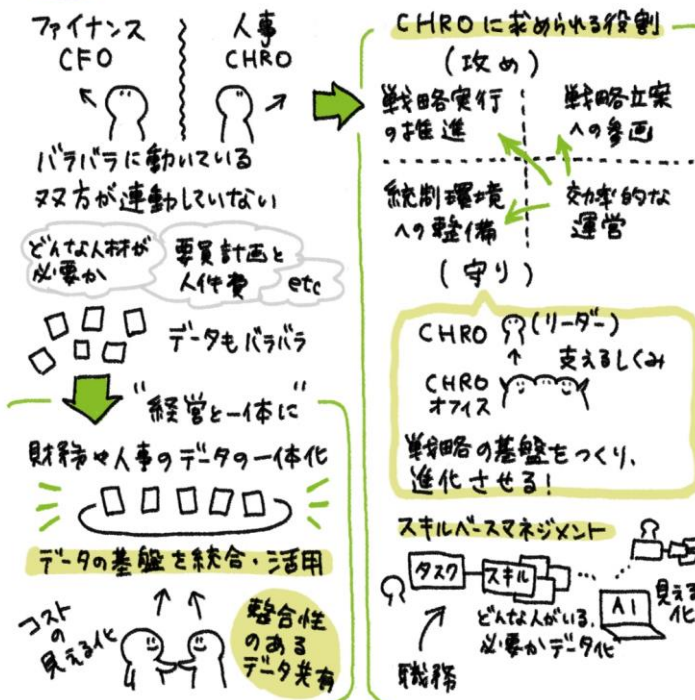 ファイナンス
CFO
人事
CHRO
バラバラに動いている
双方が連動していない
どんな人材が
必要か
要員計画と
人件費
etc
データもバラバラ
"経営と一体に"
財務や人事のデータの一体化
データの基盤を統合・活用
コスト
の
見える化
整合性
のある
データ共有
CHROに求められる役割
(攻め)
戦略実行
の推進
戦略立案
への参画
統制環境
への整備
効率的な
運営
(守り)
CHRO (リーダー)
支えるしくみ
CHRO
オフィス
戦略の基盤をつくり、
進化させる!
スキルベースマネジメント
タスク
スキル
……
AI
見える
化
どんな人がいる、
必要かデータ化
職務